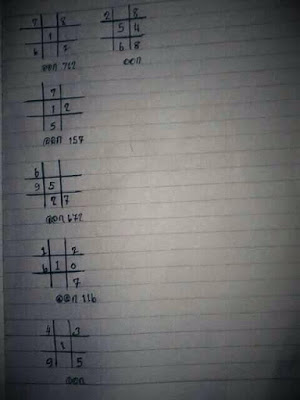 7 8
1
6 7
ออก 712
2 8
5 4
6 8
ออก
7
1 2
5
ออก 157
6
9 5
2 7
ออก 672
1 2
6 1 0
7
ออก 116
4 3
1
9 5
ออก